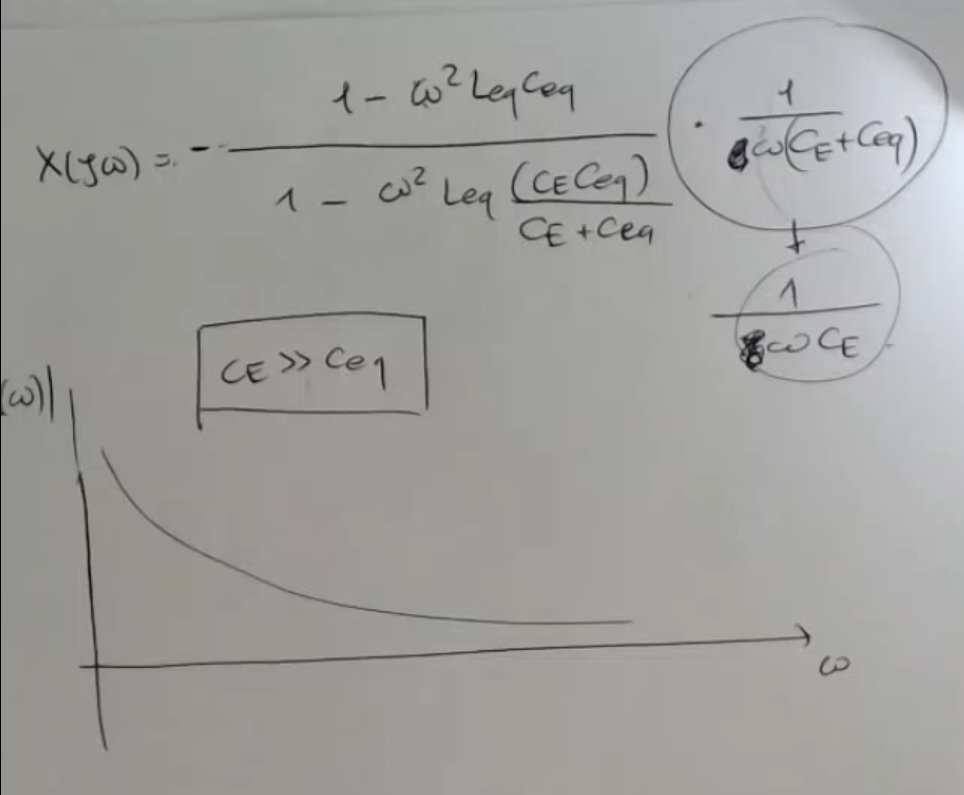 X(jω) = - (1 - ω² Leq Ceq) / (1 - ω² Leq (CE Ceq) / (CE + Ceq)) · 1 / (ω(CE + Ceq))
1 / (ω CE)
CE >> Ceq
(ω)|
ω